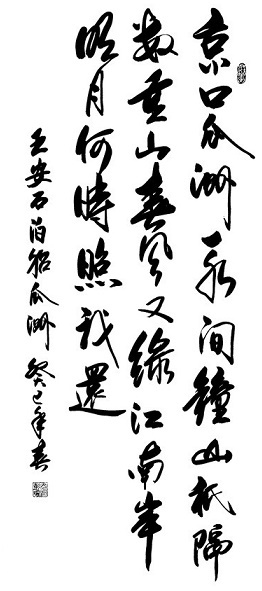 京口瓜洲一水间鐘山祇隔
数重山春风又綠江南岸
明月何時照我還
王安石泊船瓜洲 癸巳年春